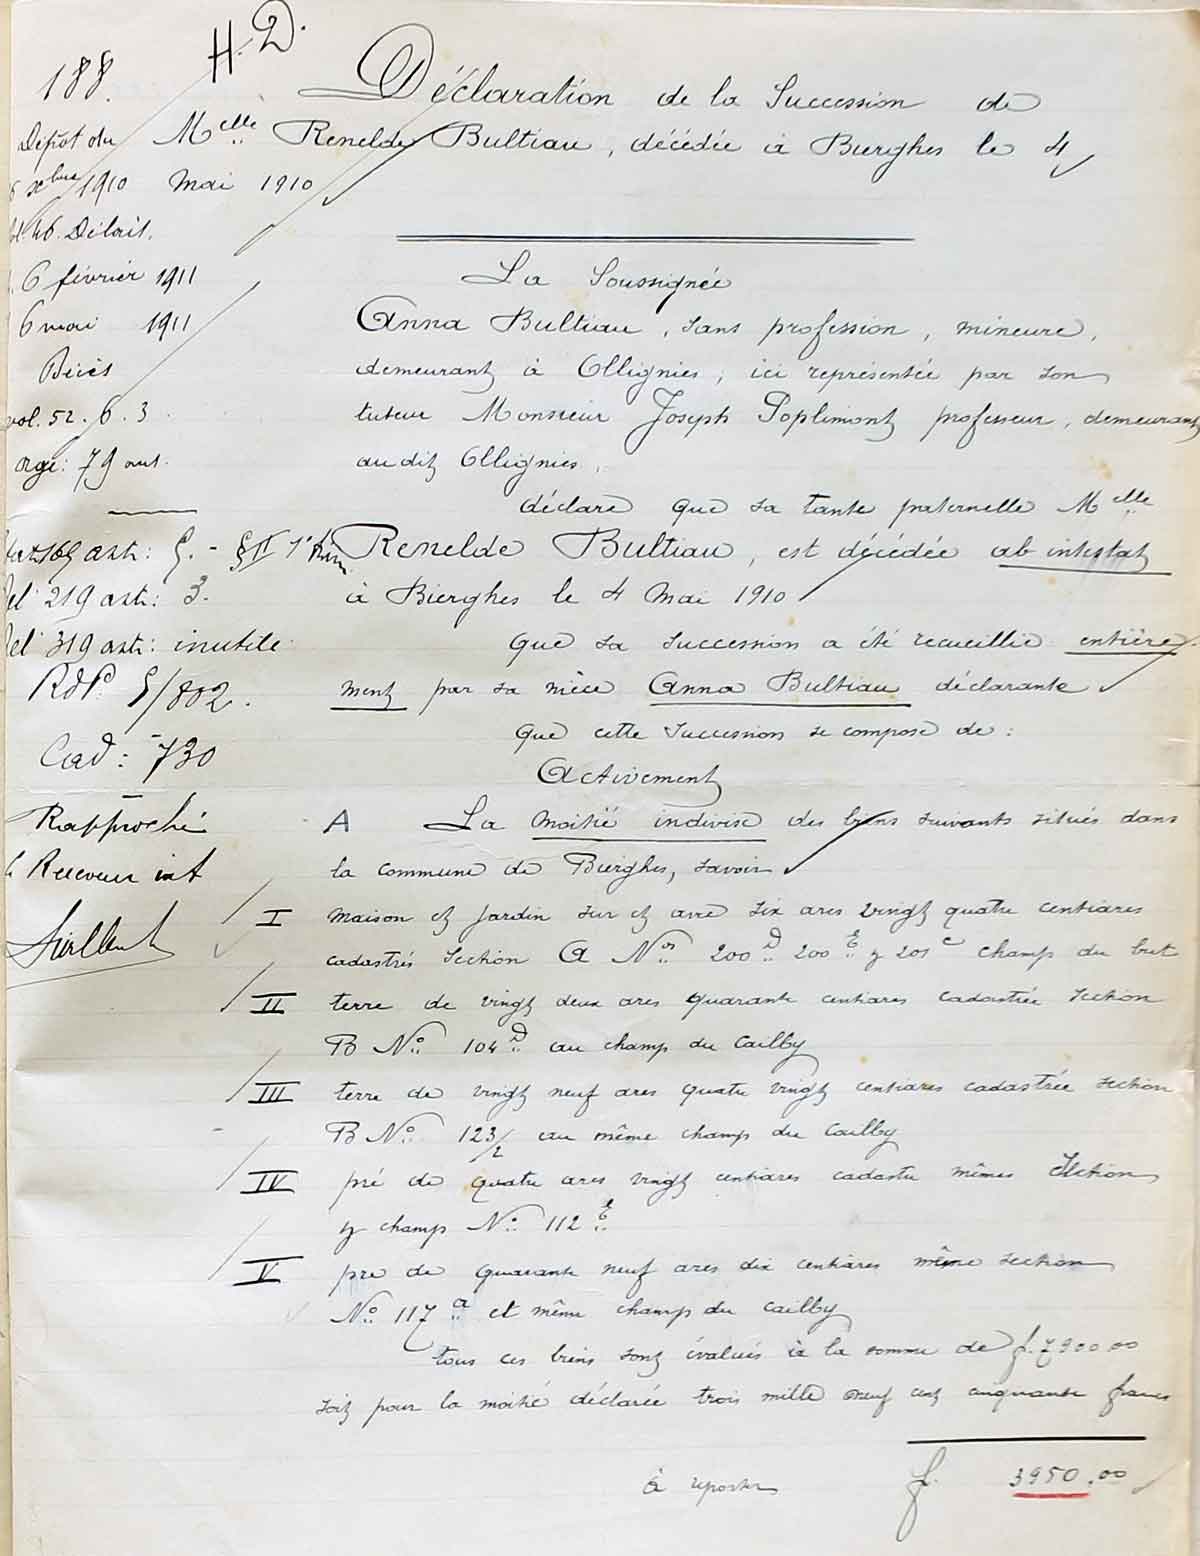 188.
H. D.
Dépôt du
xbre 1910
46. Délais.
6 février 1911
6 mai 1911
Décès
vol. 52. 6. 3
79 ant.
169 art: 5. - § II 1°
219 art: 3.
319 art: inutile
RdP. 5/802.
Cad: 730
Rapproché
Receveur int
Déclaration de la Succession de
Melle Renelde Bultiau, décédée à Bierghes le 4
Mai 1910
La Soussignée
Anna Bultiau, sans profession, mineure,
demeurant à Ollignies, ici représentée par son
tuteur Monsieur Joseph Poplimont professeur, demeurant
audit Ollignies,
déclare que sa tante paternelle Melle
Renelde Bultiau, est décédée ab intestat
à Bierghes le 4 Mai 1910
que sa succession a été recueillie entière-
ment par sa nièce Anna Bultiau déclarante
que cette Succession se compose de :
Activement
A La moitié indivise des biens suivants situés dans
la commune de Bierghes, savoir
I maison et jardin sur et avec six ares vingt quatre centiares
cadastrés Section A Nos 200D 200E et 201c champ du but
II terre de vingt deux ares quarante centiares cadastrée section
B No 104D au champ du Cailby
III terre de vingt neuf ares quatre vingt centiares cadastrée section
B No 123/2 au même champ du Cailby
IV pré de quatre ares vingt centiares cadastré mêmes Section
et champ No 112E
V pré de quarante neuf ares dix centiares même section
No 117a et même champ du Cailby
tous ces biens sont évalués à la somme de f. 7900.00
soit pour la moitié déclarée trois mille neuf cent cinquante francs
à reporter f. 3950.00